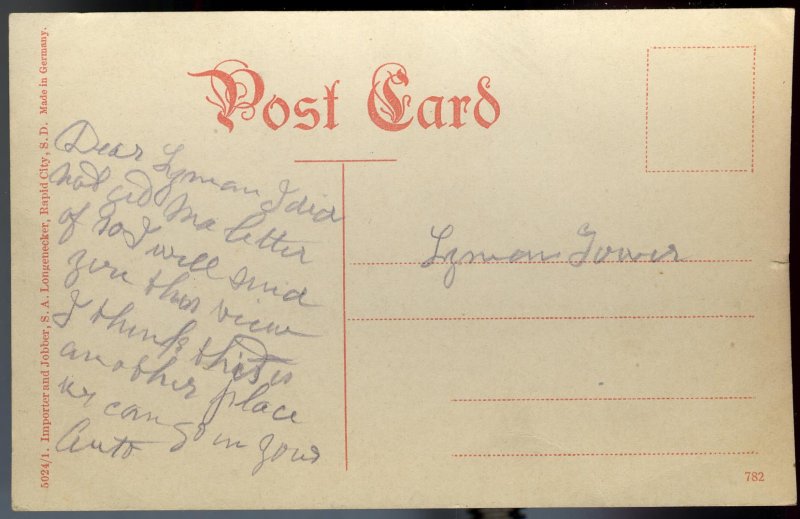 Post Card
5024/1. Importer and Jobber, S. A. Longenecker, Rapid City, S. D. Made in Germany.
Dear Lyman I did
not letter
of so I will send
you this view
I think this is
another place
we can go in your
Auto
Lyman Tower
782